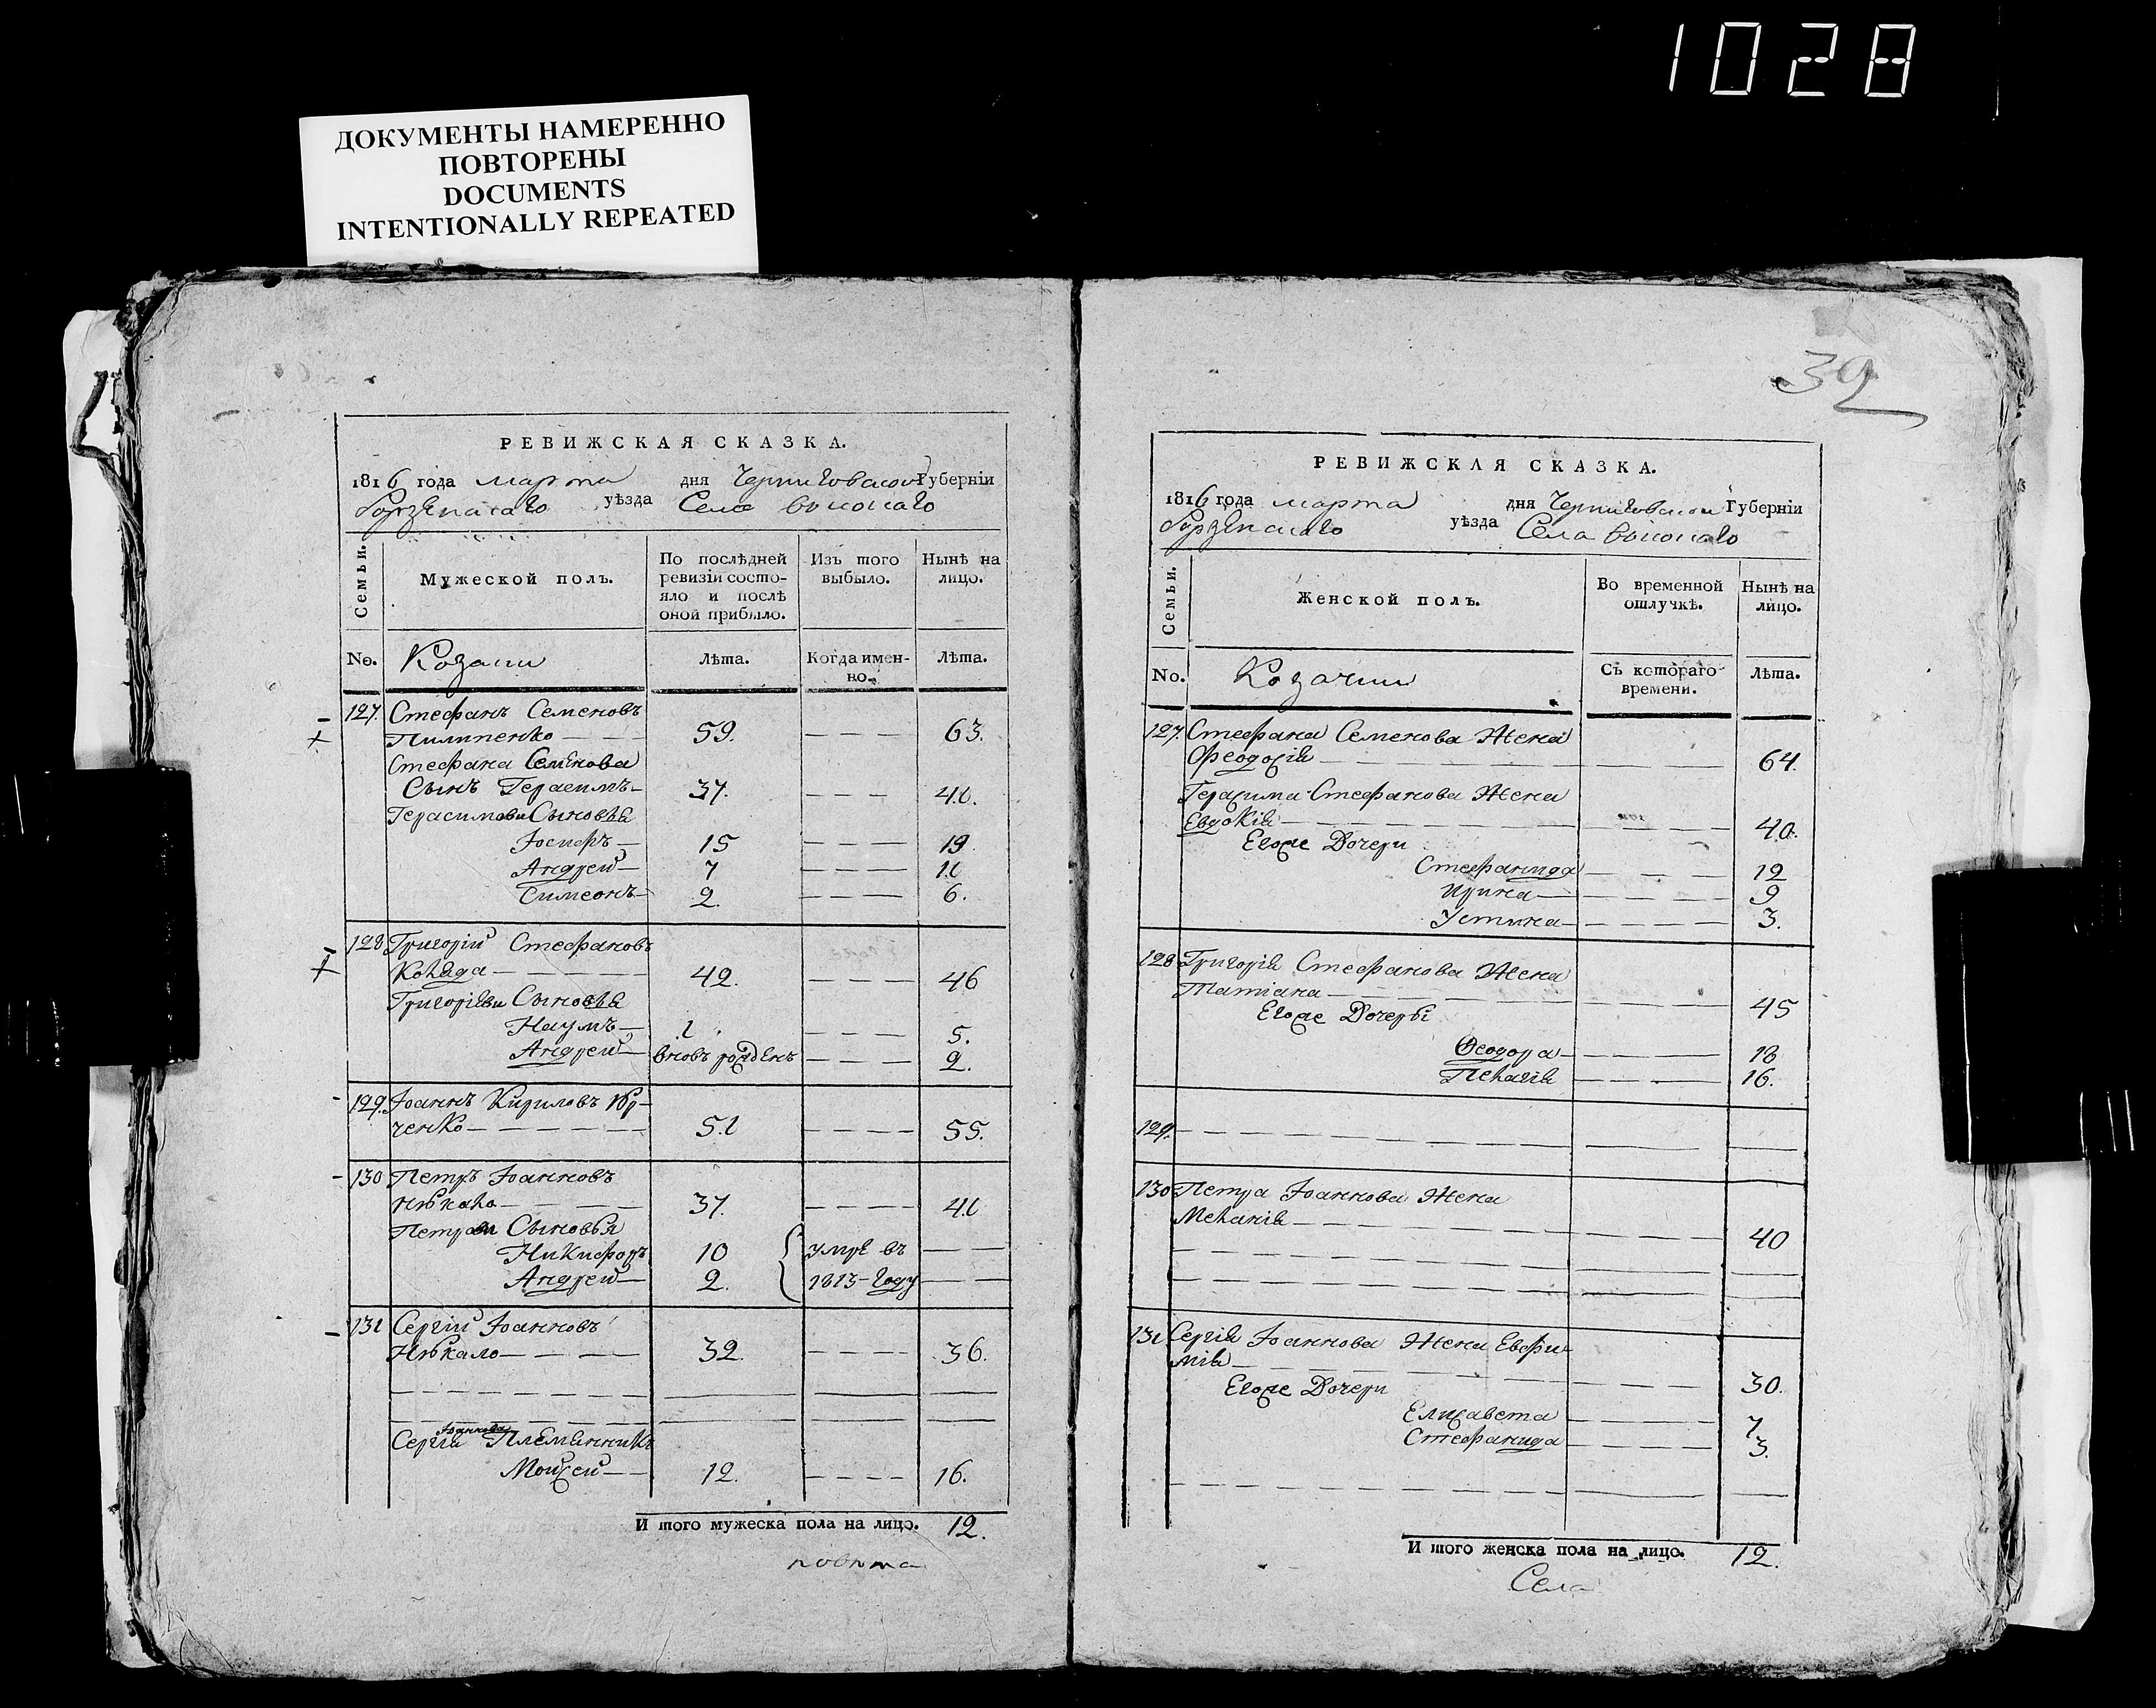 1028
ДОКУМЕНТЫ НАМЕРЕННО
ПОВТОРЕНЫ
DOCUMENTS
INTENTIONALLY REPEATED
РЕВИЖСКАЯ СКАЗКА.
1816 года марта дня Черниговской Губерніи
уѣзда Села
Семьи.
Мужеской полъ.
По послѣдней ревизіи состояло и послѣ оной прибыло.
Изъ того выбыло.
Нынѣ на лицо.
No. Козаки
Лѣта.
Когда именно.
Лѣта.
127. Стефанъ Семеновъ
Пилипенко — — — 59. — — — 63.
Стефана Семенова
Сынъ Герасимъ — 37. — — — 40.
Герасимови Сыновья
Іосифъ — 15 — — — 19
Андрей — 7 — — — 10
Симеонъ — 2. — — — 6.
128 Григорій Стефановъ
Коляда — — — 42. — — — 46
Григоріеви Сыновья
Наумъ — 1. — — — 5.
Андрей — вновь рожденъ — — — 2.
129. Іоаннъ Кириловъ
ченко — — — 51 — — — 55.
130 Петръ Іоанновъ
— — — 37. — — — 40
Петрови Сыновья
Никифоръ 10 умре въ — —
Андрей — 2. 1813 году — —
131 Сергій Іоанновъ
— — — 32. — — — 36.
Іоаннова
Сергія Племянникъ
Мойсей — — 12. — — — 16.
И того мужеска пола на лицо. 12.
39
РЕВИЖСКАЯ СКАЗКА.
1816 года марта дня Черниговской Губерніи
уѣзда Села
Семьи.
Женской полъ.
Во временной отлучкѣ.
Нынѣ на лицо.
No. Козачки
Съ котораго времени.
Лѣта.
127. Стефана Семенова Жена
Феодосія — — — 64.
Герасима Стефанова Жена
Евдокія — — — 40.
Егоже Дочери
Стефанида — — — 12
Ирина — — — 9
Устина — — — 3.
128 Григорія Стефанова Жена
Татіана — — — 45
Егоже Дочери
Феодора — — — 18
Пелагія — — — 16.
129. — — —
130 Петра Іоаннова Жена
Меланія — — — 40
131 Сергія Іоаннова Жена Евфи-
мія — — — 30.
Егоже Дочери
Елисавета — — — 7
Стефанида — — — 3.
И того женска пола на лицо. 12.
Села